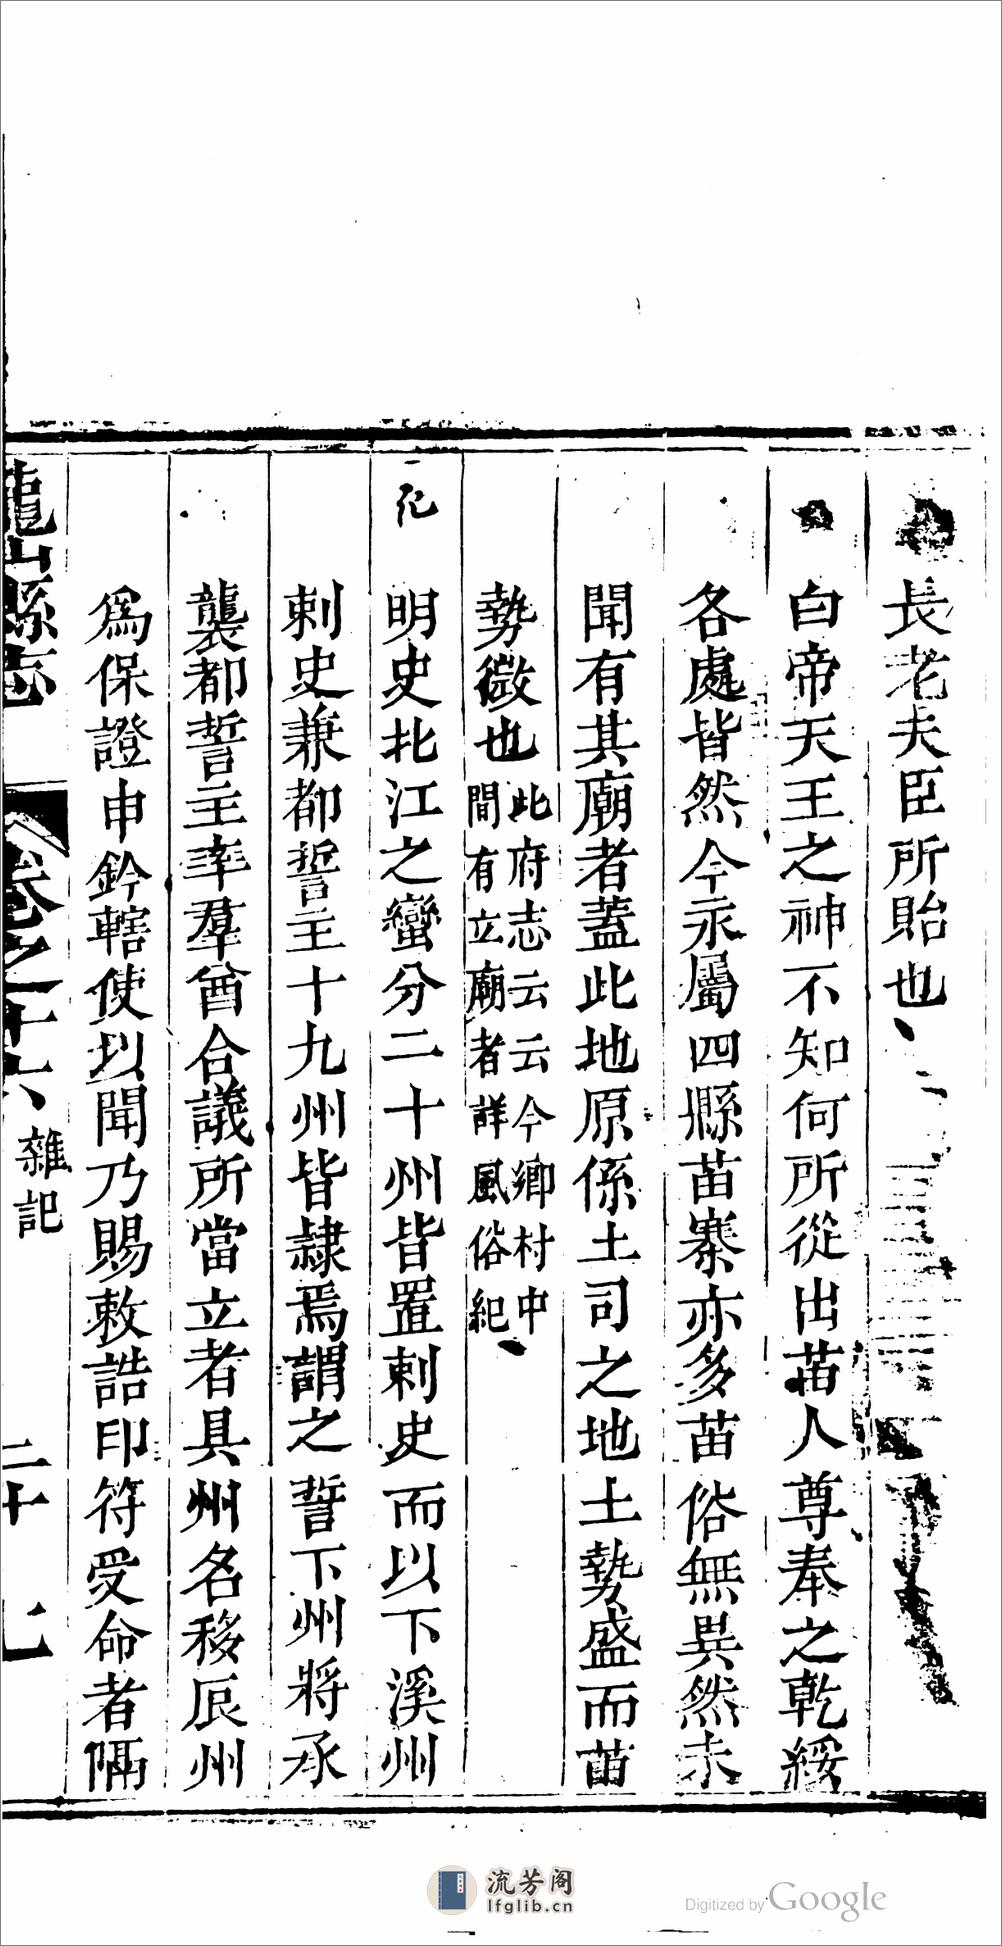 長老夫臣所貽也
白帝天王之神不知何所從出苗人尊奉之乾綏
各處皆然今永屬四縣苗寨亦多苗俗無異然未
聞有其廟者蓋此地原係土司之地土勢盛而苗
勢微也此府志云云今鄉村中
間有立廟者詳風俗紀
明史北江之蠻分二十州皆置刺史而以下溪州
刺史兼都誓主十九州皆隸焉謂之誓下州將承
襲都誓主率羣酋合議所當立者具州名移辰州
為保證申鈐轄使以聞乃賜敕誥印符受命者隔
龍山縣志
卷之十六
雜記
二十七
流芳阁
lfglib.cn
Digitized by Google